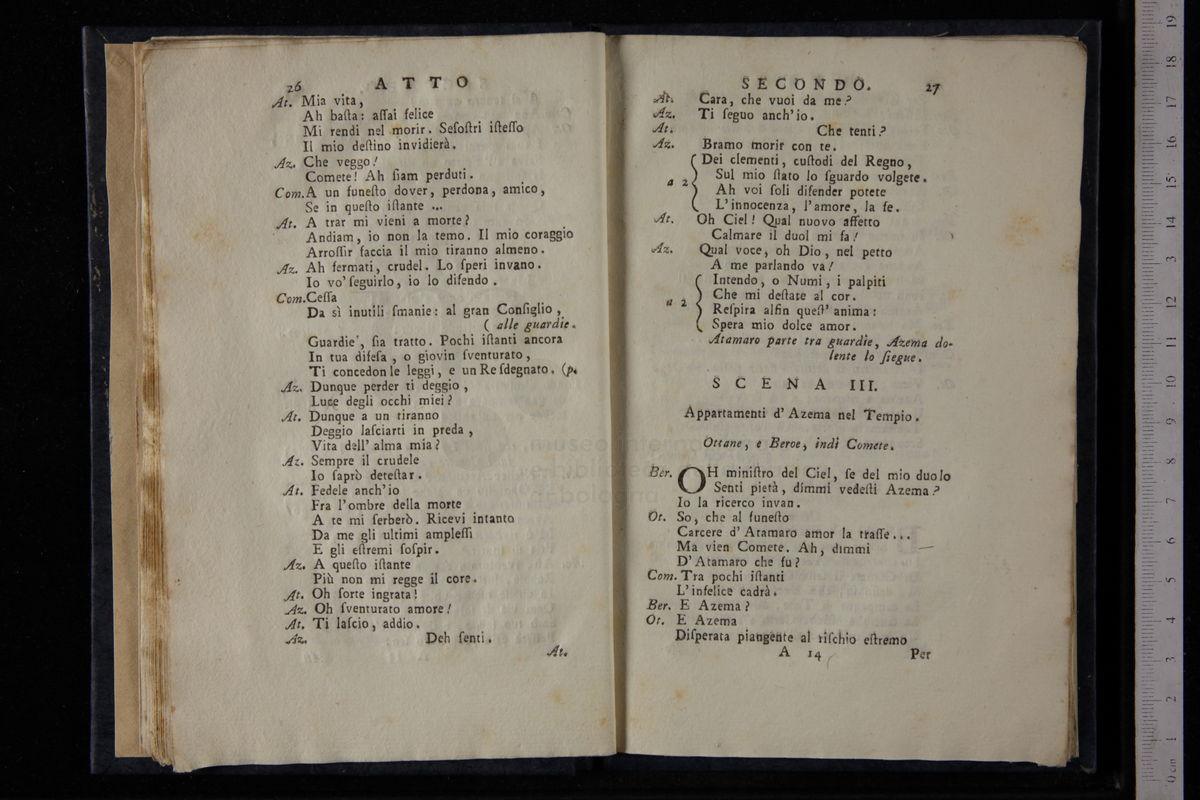 26 ATTO
At. Mia vita,
Ah baſta: aſſai felice
Mi rendi nel morir. Seſoſtri iſteſſo
Il mio deſtino invidierà.
Az. Che veggo!
Comete! Ah ſiam perduti.
Com. A un funeſto dover, perdona, amico,
Se in queſto iſtante ...
At. A trar mi vieni a morte?
Andiam, io non la temo. Il mio coraggio
Arroſſir faccia il mio tiranno almeno.
Az. Ah fermati, crudel. Lo ſperi invano.
Io vo' ſeguirlo, io lo difendo.
Com. Ceſſa
Da sì inutili ſmanie: al gran Conſiglio,
( alle guardie.
Guardie, ſia tratto. Pochi iſtanti ancora
In tua difeſa, o giovin ſventurato,
Ti concedon le leggi, e un Re ſdegnato. (p.
Az. Dunque perder ti deggio,
Luce degli occhi miei?
At. Dunque a un tiranno
Deggio laſciarti in preda,
Vita dell' alma mia?
Az. Sempre il crudele
Io ſaprò deteſtar.
At. Fedele anch'io
Fra l'ombre della morte
A te mi ſerberò. Ricevi intanto
Da me gli ultimi ampleſſi
E gli eſtremi ſoſpir.
Az. A queſto iſtante
Più non mi regge il core.
At. Oh ſorte ingrata!
Az. Oh ſventurato amore!
At. Ti laſcio, addio.
Az. Deh ſenti.
At.
SECONDO. 27
At. Cara, che vuoi da me?
Az. Ti ſeguo anch'io.
At. Che tenti?
Az. Bramo morir con te.
Dei clementi, cuſtodi del Regno,
Sul mio ſtato lo ſguardo volgete.
a 2 Ah voi ſoli difender potete
L'innocenza, l'amore, la fe.
At. Oh Ciel! Qual nuovo affetto
Calmare il duol mi fa!
Az. Qual voce, oh Dio, nel petto
A me parlando va!
Intendo, o Numi, i palpiti
Che mi deſtate al cor.
a 2 Reſpira alfin queſt' anima:
Spera mio dolce amor.
Atamaro parte tra guardie, Azema do-
lente lo ſiegue.
SCENA III.
Appartamenti d'Azema nel Tempio.
Ottane, e Beroe, indi Comete.
Ber. OH miniſtro del Ciel, ſe del mio duolo
Senti pietà, dimmi vedeſti Azema?
Io la ricerco invan.
Ot. So, che al funeſto
Carcere d'Atamaro amor la traſſe...
Ma vien Comete. Ah, dimmi
D'Atamaro che fu?
Com. Tra pochi iſtanti
L'infelice cadrà.
Ber. E Azema?
Ot. E Azema
Diſperata piangente al riſchio eſtremo
A 14 Per